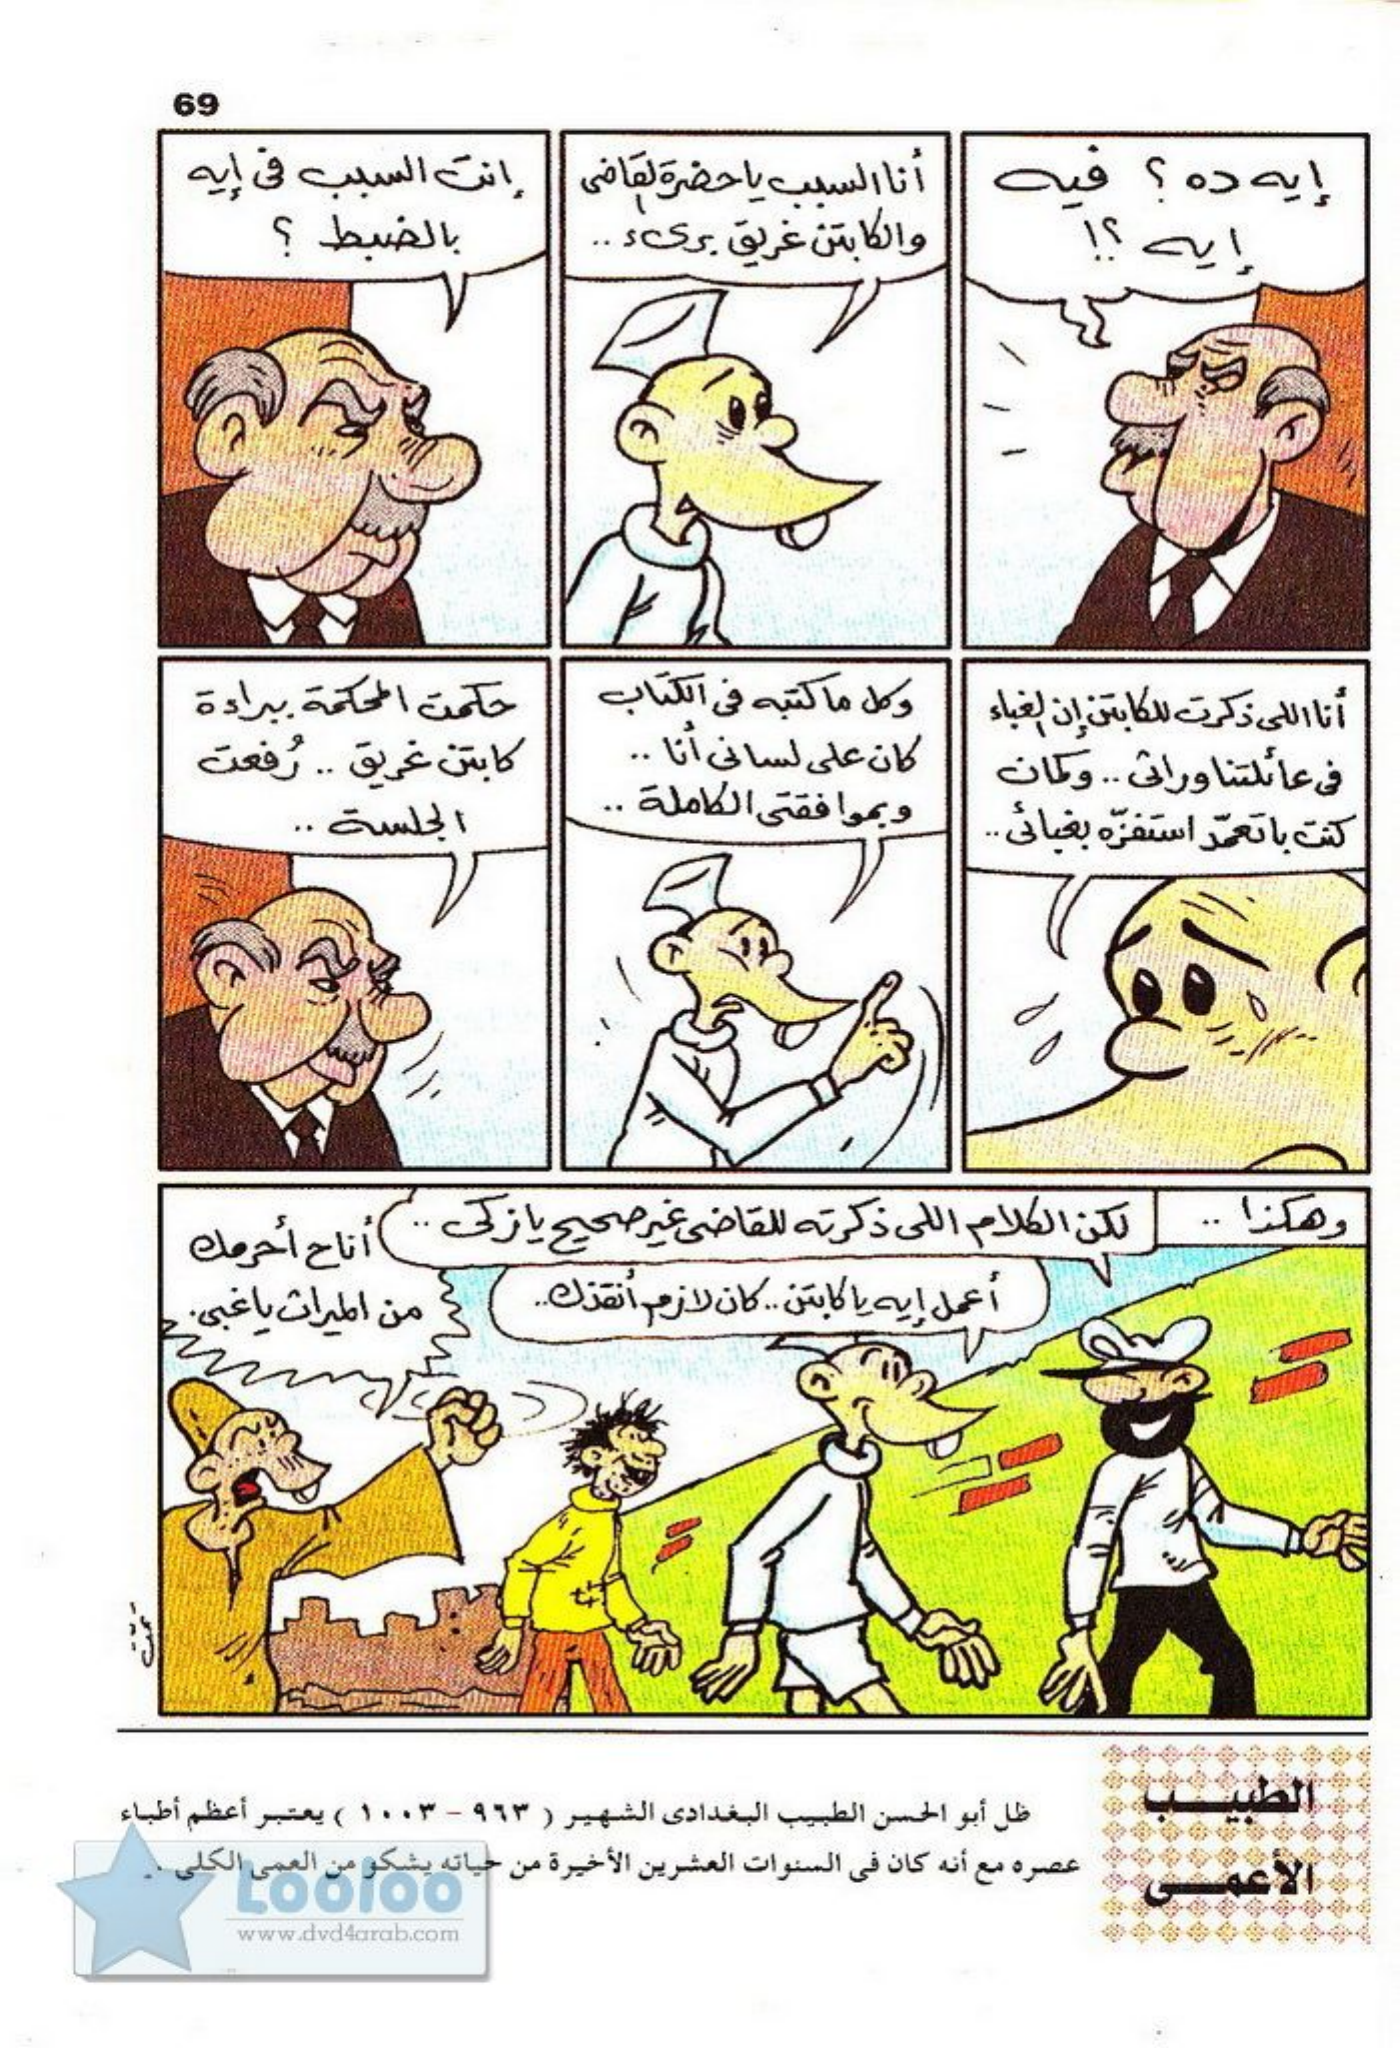 69
إيه ده ؟ فيه
إيه ؟!
أنا السبب يا حضرة القاضى
والكابتن غريق برىء ..
إنت السبب فى إيه
بالضبط ؟
أنا اللى ذكرت للكابتن إن الغباء
فى عائلتنا وراثى .. وكمان
كنت باتعمّد استفزّه بغبائى ..
وكل ما كتبه فى الكتاب
كان على لسانى أنا ..
وبموافقتى الكاملة ..
حكمت المحكمة ببراءة
كابتن غريق .. رُفعت
الجلسة ..
وهكذا ..
لكن الكلام اللى ذكرته للقاضى غير صحيح يا زكى ..
أعمل إيه يا كابتن .. كان لازم أنقذك ..
أنا ح أحرمك
من الميراث يا غبى .
الطبيب
الأعمى
ظل أبو الحسن الطبيب البغدادى الشهير ( ٩٦٣ - ١٠٠٣ ) يعتبر أعظم أطباء
عصره مع أنه كان فى السنوات العشرين الأخيرة من حياته يشكو من العمى الكلى .
Looloo
www.dvd4arab.com